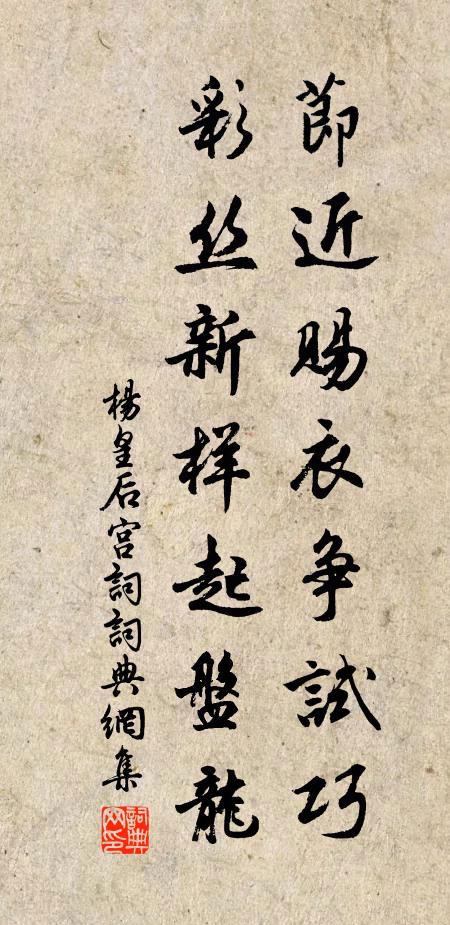 節近賜衣争試巧
彩丝新样起盤龍
楊皇后宫詞詞典網集
詞典网印